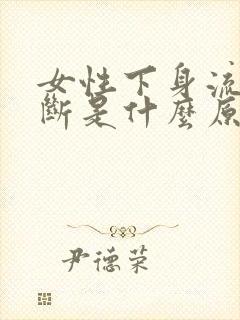 女性下身流
斷是什麼原
尹德荣